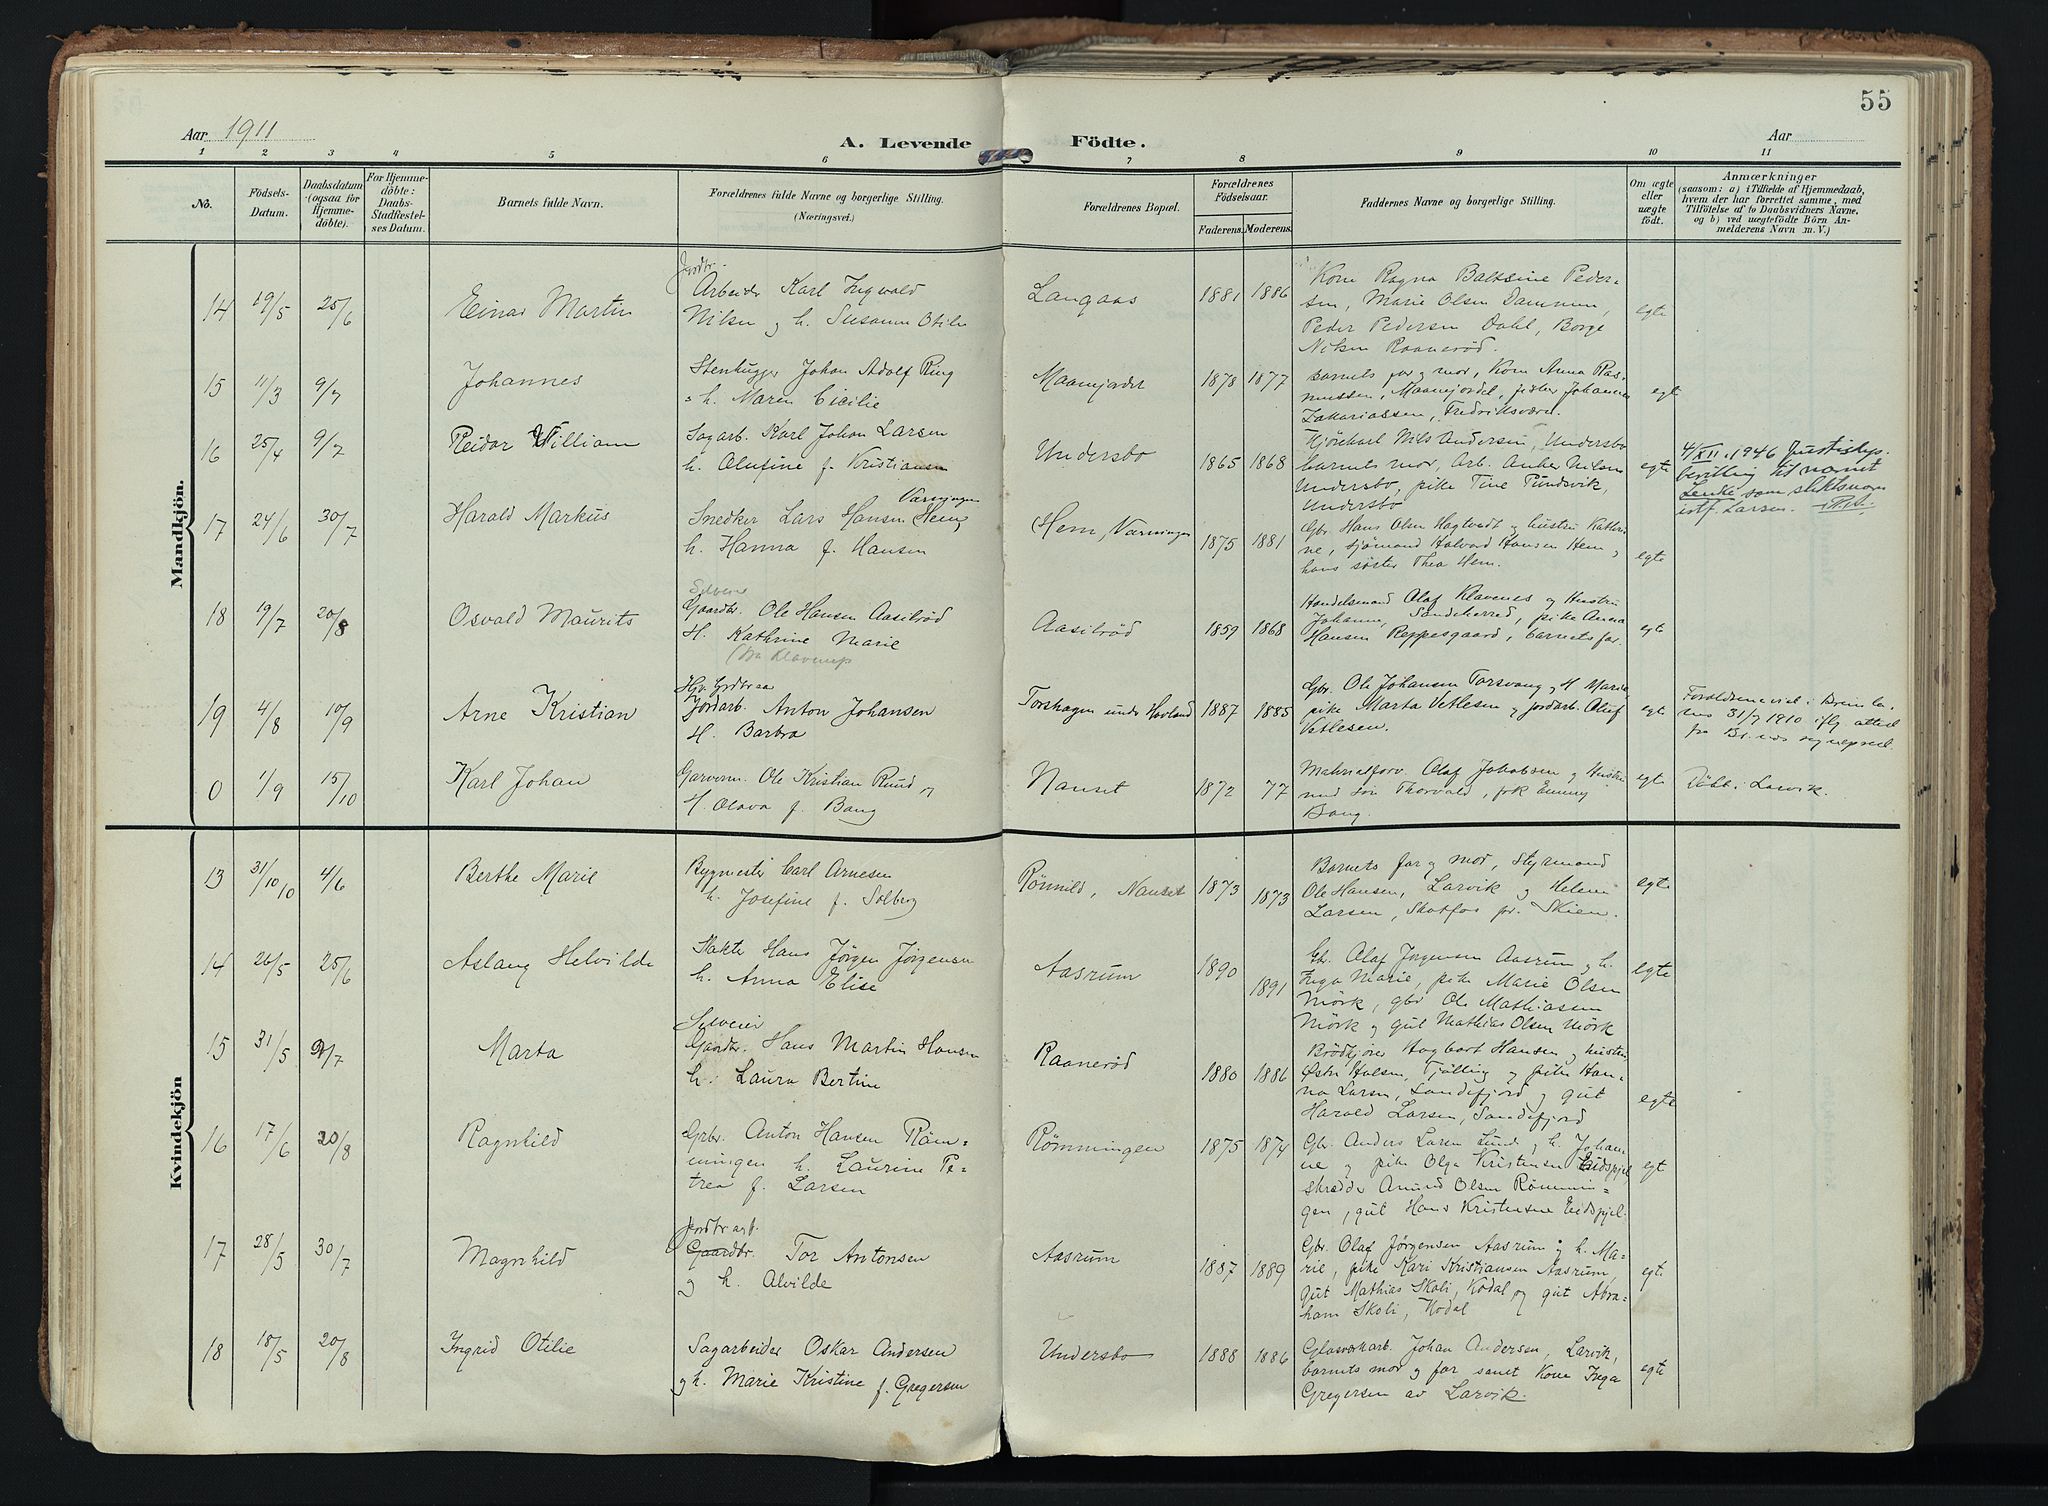 55
Aar 1911
A. Levende Födte.
Aar
1 2 3 4 5 6 7 8 9 10 11
No.
Födsels-
Datum.
Daabsdatum
(ogsaa for
Hjemme-
döbte).
For Hjemme-
döbte:
Daabs-
Stadfæstel-
ses Datum.
Barnets fulde Navn.
Forældrenes fulde Navne og borgerlige Stilling.
(Næringsvei.)
Forældrenes Bopæl.
Forældrenes
Födselsaar.
Faderens. Moderens.
Faddernes Navne og borgerlige Stilling.
Om ægte
eller
uægte
födt.
Anmærkninger
(saasom: a) i Tilfælde af Hjemmedaab,
hvem der har forrettet samme, med
Tilföielse af to Daabsvidners Navne,
og b) ved uægtefödte Börn An-
melderens Navn m. V.)
Mandkjön.
14 19/5 25/6 Einar Martin
Jordbr.
Arbeider Karl Ingvald
Nilsen og h. Susanne Otilie
Langaas 1881 1886
Kone Ragna Baltsine Peder-
sen, Marie Olsen Dammen,
Peder Pedersen Dahl, Borge
Nilsen Raanerød.
egte
15 11/3 9/7 Johannes
Stenhugger Johan Adolf Ring
h. Maren Cicilie
Maanejordet 1878 1877
barnets far og mor, Kone Anna Ras-
mussen, Maanejordet, Johanna
Zakariassen, Fredriksværn.
egte
16 25/4 9/7 Reidar William
Sagarb. Karl Johan Larsen
h. Olufine f. Kristiansen
Undersbo 1865 1868
Kjørekarl Nils Andersen, Undersbo
barnets mor, Arb. Anker Nilsen
Undersbo, pike Tine Pundsvik,
Undersbo
egte
4/XII. 1946 Justisdep.
bevilling til navnet
Lenke som slektsnavn
istf. Larsen.
17 24/6 30/7 Harald Markus
Snedker Lars Hansen Hem,
h. Hanna f. Hansen
Hem, 1875 1881
Gbr. Hans Olsen Hagtvedt og hustru Kathri-
ne, sjömand Halvard Hansen Hem og
hans søster Thea Hem.
egte
18 19/7 20/8 Osvald Maurits
Selveier
Gaardbr. Ole Hansen Aasilrød
H. Kathrine Marie
Aasilrød 1859 1868
Handelsmand Olaf Klavenes og Hustru
Johanne, Sandeherred, pike Anna
Hansen Reppesgaard, barnets far.
egte
19 4/8 10/9 Arne Kristian
Jordarb. Anton Johansen
H. Barbra
Torshagen under Hovland 1887 1885
Gbr. Ole Johansen Torsvang og H. Marie,
pike Marta Vetlesen og jordarb. Oluf
Vetlesen.
egte
Forældrene viet i Brunla-
nes 31/7 1910 iflg. attest
fra
0 1/9 15/10 Karl Johan
Garverm. Ole Kristian Ruud og
H. Olava f. Bang
Nanset 1872 77
Olaf Jakobsen og Hustru
med søn Thorvald, frk Emmy
Bang.
egte
Döbt i Larvik.
Kvindekjön
13 31/10 10 4/6 Berthe Marie
Bygmester Carl Arnesen
h. Josefine f. Solberg
Rønnild, Nanset 1873 1873
Barnets far og mor, Styrmand
Ole Hansen, Larvik og Helene
Larsen, Skotfos pr. Skien.
egte
14 26/5 25/6 Aslaug Helvilde
Slakter Hans Jørgen Jørgensen
h. Anna Elise
Aasrum 1890 1891
Gbr. Olaf Jørgensen Aasrum og h.
Inga Marie, pike Marie Olsen
Mörk, gbr Ole Mathiassen
Mörk og gut Mathias Olsen Mörk
egte
15 31/5 9/7 Marta
Selveier
Gaardbr. Hans Martin Hansen
h. Laura Bertine
Raanerød 1880 1886
Brödkjører Hagbart Hansen og hustru
Olsen, Tjølling og pike Han-
na Larsen, Sandefjord og gut
Harald Larsen, Sandefjord
egte
16 17/6 20/8 Ragnhild
Grbr. Anton Hansen Røm-
ningen h. Laurine Pe-
trea f. Larsen
Rømmingen 1875 1874
Gbr. Anders Larsen Lund, og h. Johan-
ne og pike Olga Kristensen Eidspjel
skrædder Amund Olsen Rømmin-
gen, gut Hans Kristensen Eidspjel.
egt
17 28/5 30/7 Magnhild
Gaardbr. Tor Antonsen
og h. Alvilde
Aasrum 1887 1889
Gbr. Olaf Jørgensen Aasrum og h. Ma-
rie, pike Kari Kristiansen Aasrum,
gut Mathias Skoli, Kodal og gut Abra-
ham Skoli, Kodal
egt.
18 18/5 20/8 Ingrid Otilie
Sagarbeider Oskar Andersen
og h. Marie Kristine f. Gregersen
Undersbo 1888 1886
Glasværkarb. Johan Andersen, Larvik,
barnets mor og far samt Kone Inga
Gregersen av Larvik.
egte